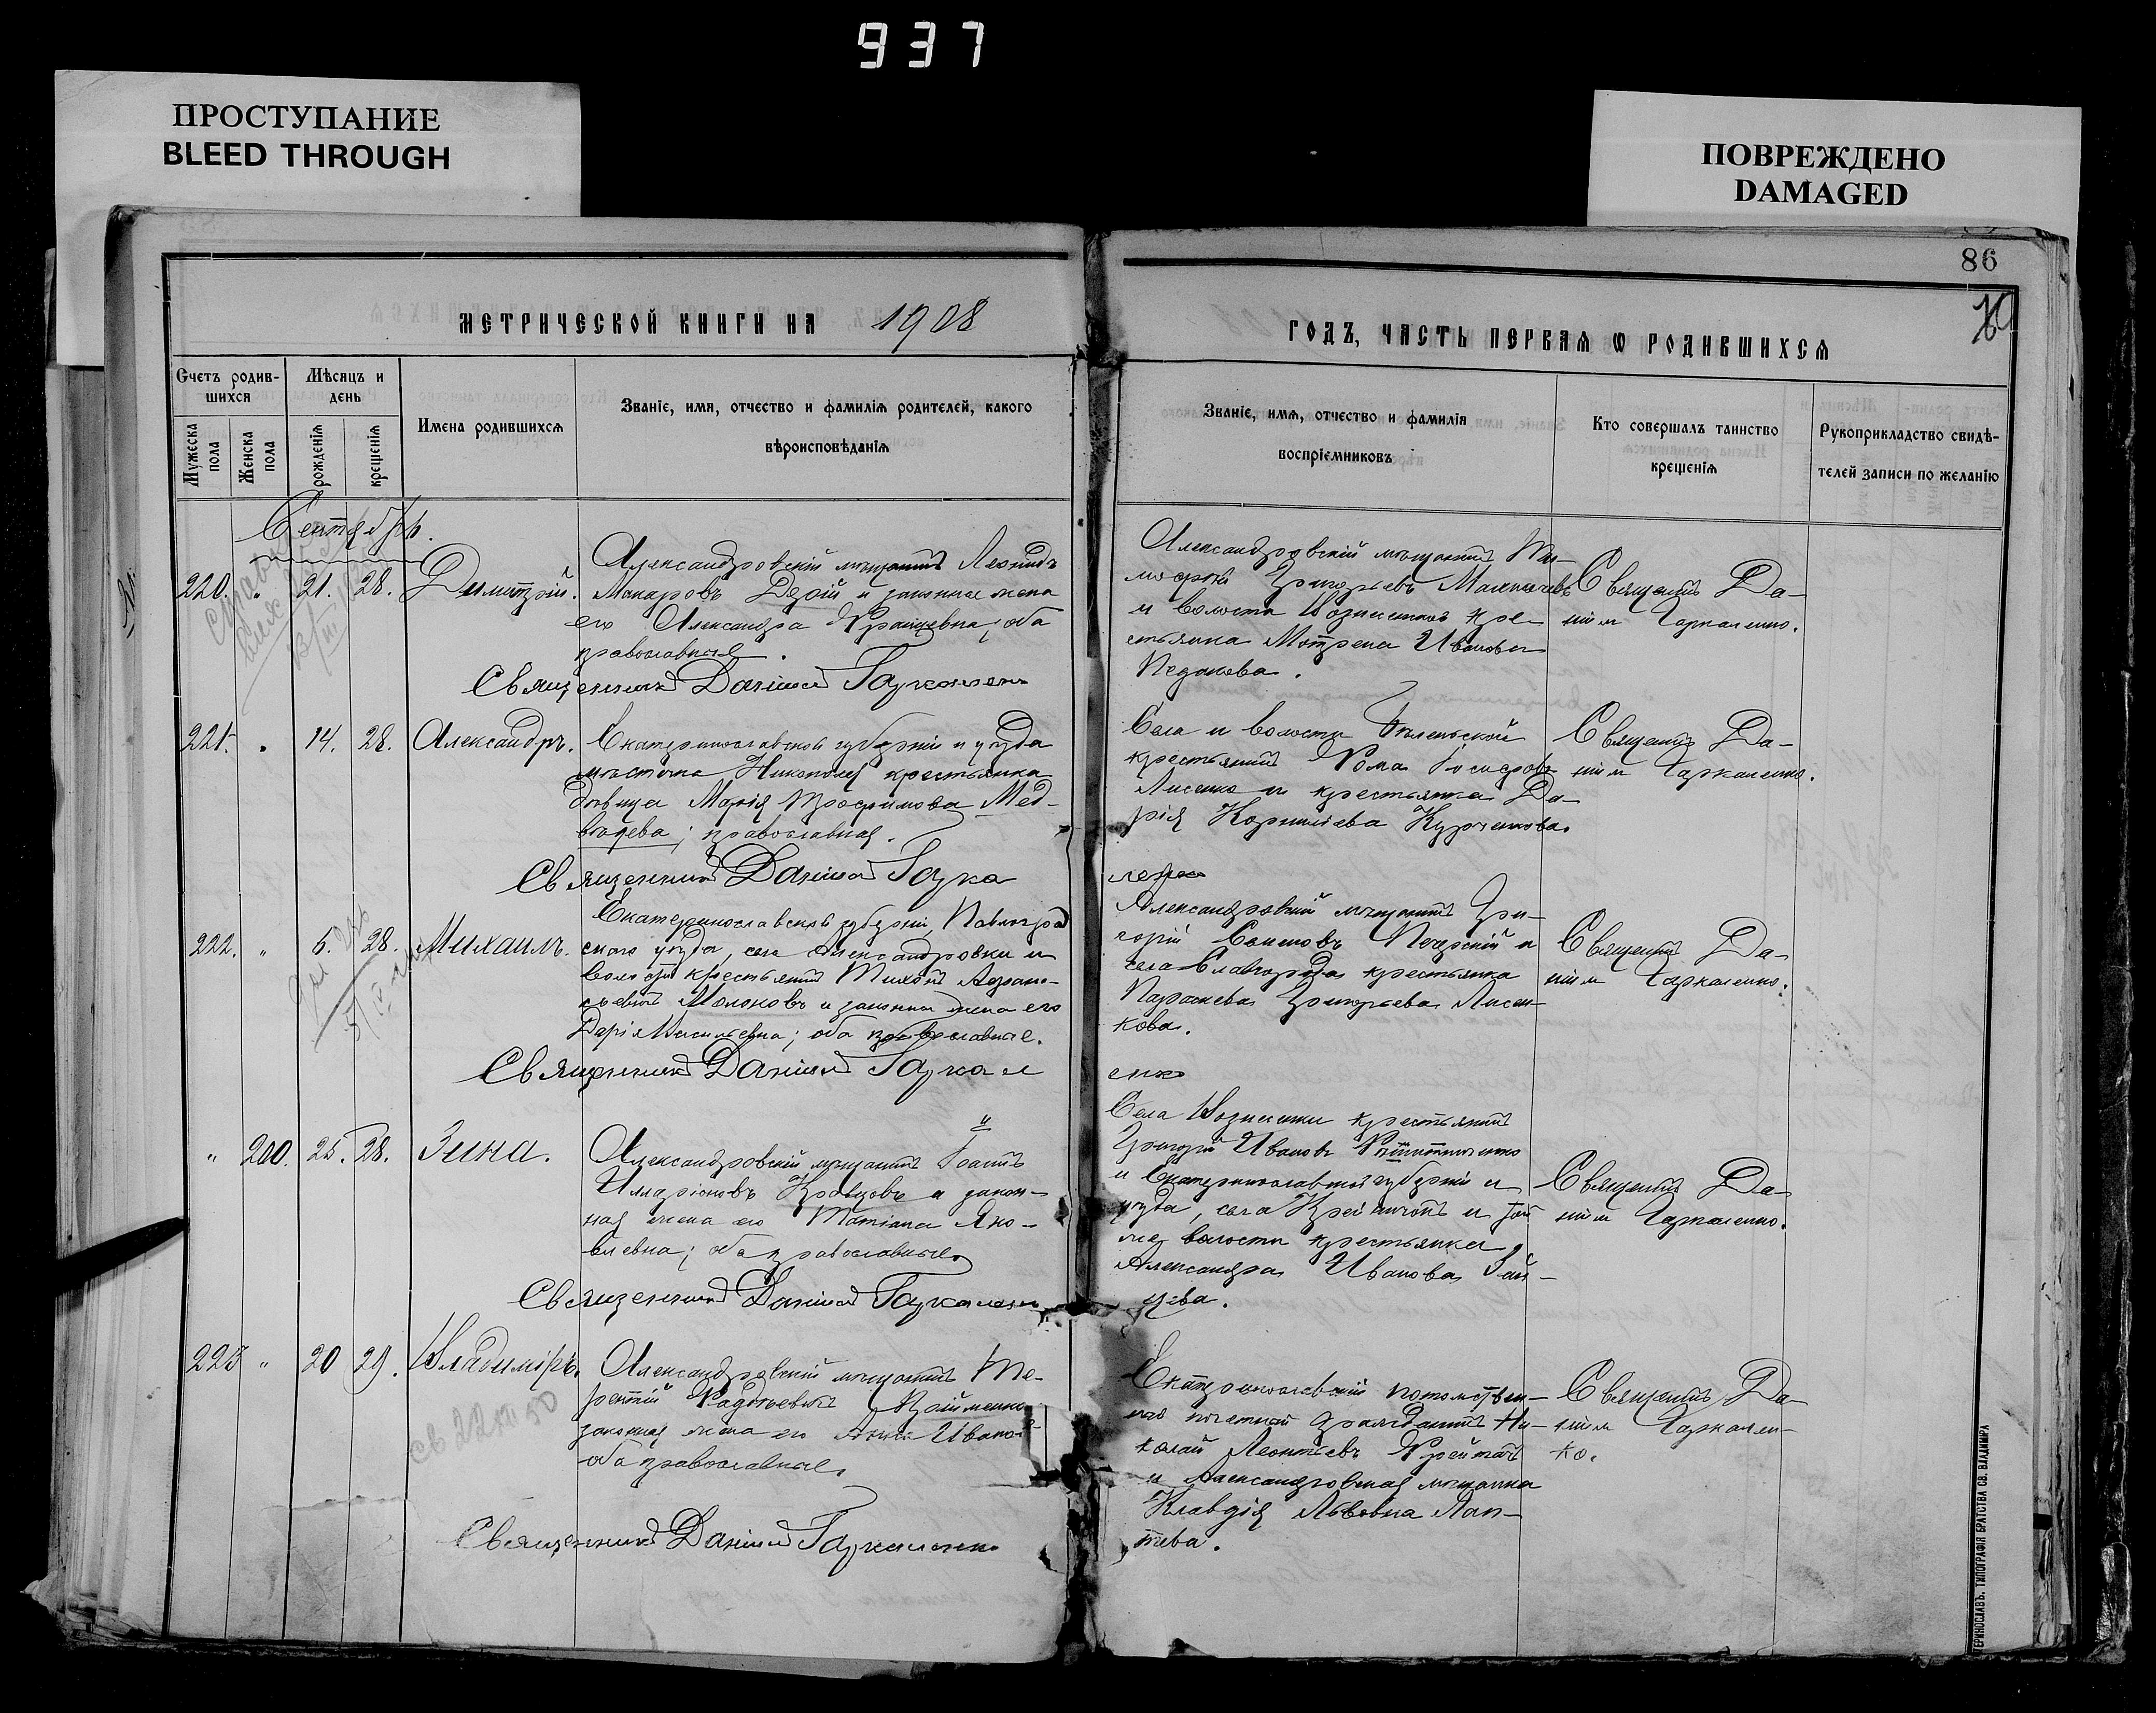 937
ПРОСТУПАНИЕ
BLEED THROUGH
ПОВРЕЖДЕНО
DAMAGED
86
МЕТРИЧЕСКОЙ КНИГИ НА 1908
ГОДЪ, ЧАСТЬ ПЕРВАЯ Ѡ РОДИВШИХСЯ
Счетъ родив-
шихся
Мужеска пола
Женска пола
Мѣсяцъ и
день
рожденія
крещенія
Имена родившихся
Званіе, имя, отчество и фамилія родителей, какого
вѣроисповѣданія
Званіе, имя, отчество и фамилія
воспріемниковъ
Кто совершалъ таинство
крещенія
Рукоприкладство свидѣ-
телей записи по желанію
Сентябрь.
220. " 21. 28. Димитрій.
Александровскій мѣщанинъ Леонидъ
Макаровъ Дезій и законная жена
его Александра
оба
православные.
Священникъ Даніилъ Гаркаленко
Александровскій мѣщанинъ Ти-
мофей Григорьевъ
и волости Вознесенки кре-
стьянка Мотрона Иванова
Педакова.
Священникъ Да-
ніилъ Гаркаленко.
221. " 14. 28. Александръ.
Екатеринославской губерніи и уѣзда
мѣстечка Никополя крестьянка
дѣвица Марія Трофимова Мед-
вѣдева; православная.
Священникъ Даніилъ Гарка
ленко
Села и волости Бѣленькой
крестьянинъ Ѳома
Лисенко и крестьянка Да-
рія Корнильева Курченкова.
Священникъ Да-
ніилъ Гаркаленко.
222. " 6. 28. Михаилъ.
Екатеринославской губерніи, Павлоград
скаго уѣзда, села Александровки и
волости крестьянинъ Тихонъ
Молоковъ и законная жена его
Дарія Васильевна; оба православные.
Священникъ Даніилъ Гаркал
енко
Александровскій мѣщанинъ Гри-
горій Семеновъ
и
села Славгорода крестьянка
Параскева Григорьева Лисен-
кова.
Священникъ Да-
ніилъ Гаркаленко.
" 200. 25. 28. Зина.
Александровскій мѣщанинъ Іоаннъ
Илларіоновъ Кравцовъ и закон-
ная жена его Татіана Яко-
влевна; оба православные.
Священникъ Даніилъ Гаркаленко
Села Вознесенки крестьянинъ
Григорій Ивановъ
и Екатеринославской губерніи и
уѣзда, села
и той
же волости крестьянка
Александра Иванова Зай-
цева.
Священникъ Да-
ніилъ Гаркаленко.
223 " 20 29. Владиміръ.
Александровскій мѣщанинъ Те-
рентій
Ѳадѣевичъ
законная жена его Анна Иванов
оба православные.
Священникъ Даніилъ Гаркаленко
Екатеринославскій потомствен-
ный почетный гражданинъ Ни-
колай Леонтьевъ
и Александровская мѣщанка
Клавдія Львовна Лап-
тева.
Священникъ Да-
ніилъ Гаркален-
ко.
св 22 XII 50
ТЕРИНОСЛАВЪ. ТИПОГРАФІЯ БРАТСТВА СВ. ВЛАДИМІРА